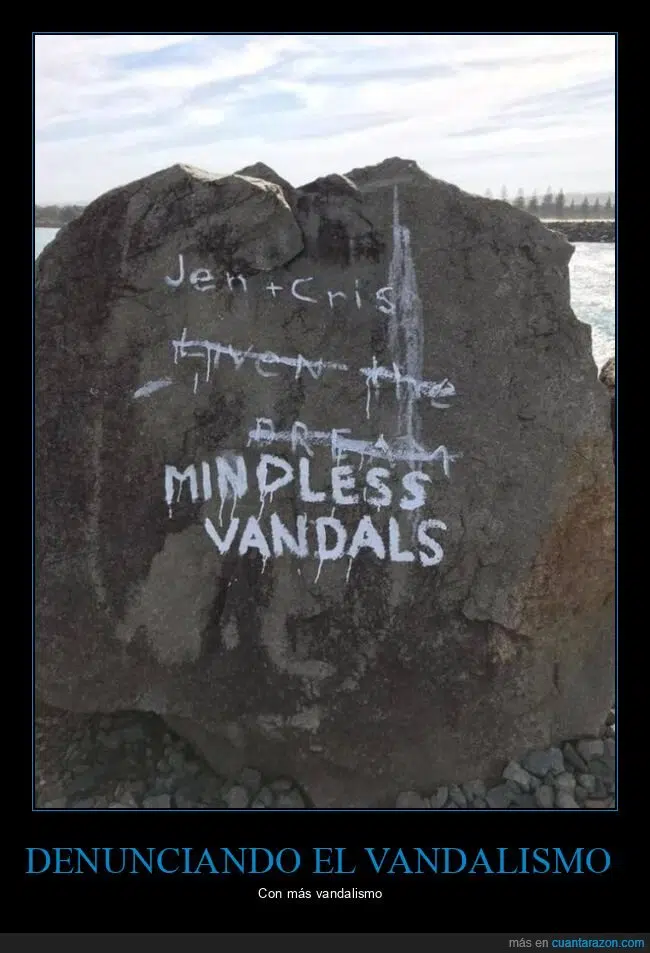 Jen + Cris
Liven the
DREAM
MINDLESS
VANDALS
DENUNCIANDO EL VANDALISMO
Con más vandalismo
más en cuantarazon.com